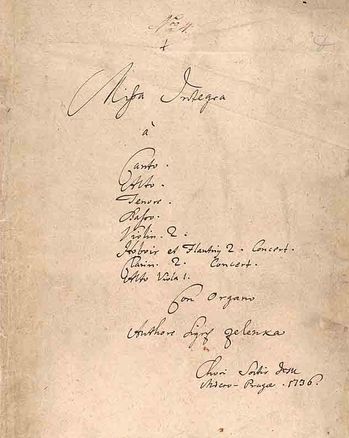 Missa Integra
à
Canto.
Alto.
Tenore.
Basso.
Violin. 2.
Hobois et Flautin 2. Concert.
Clarin. 2. Concert.
Alto Viola 1.
Con Organo
Authore Sigre Zelenka
Chori
1736.